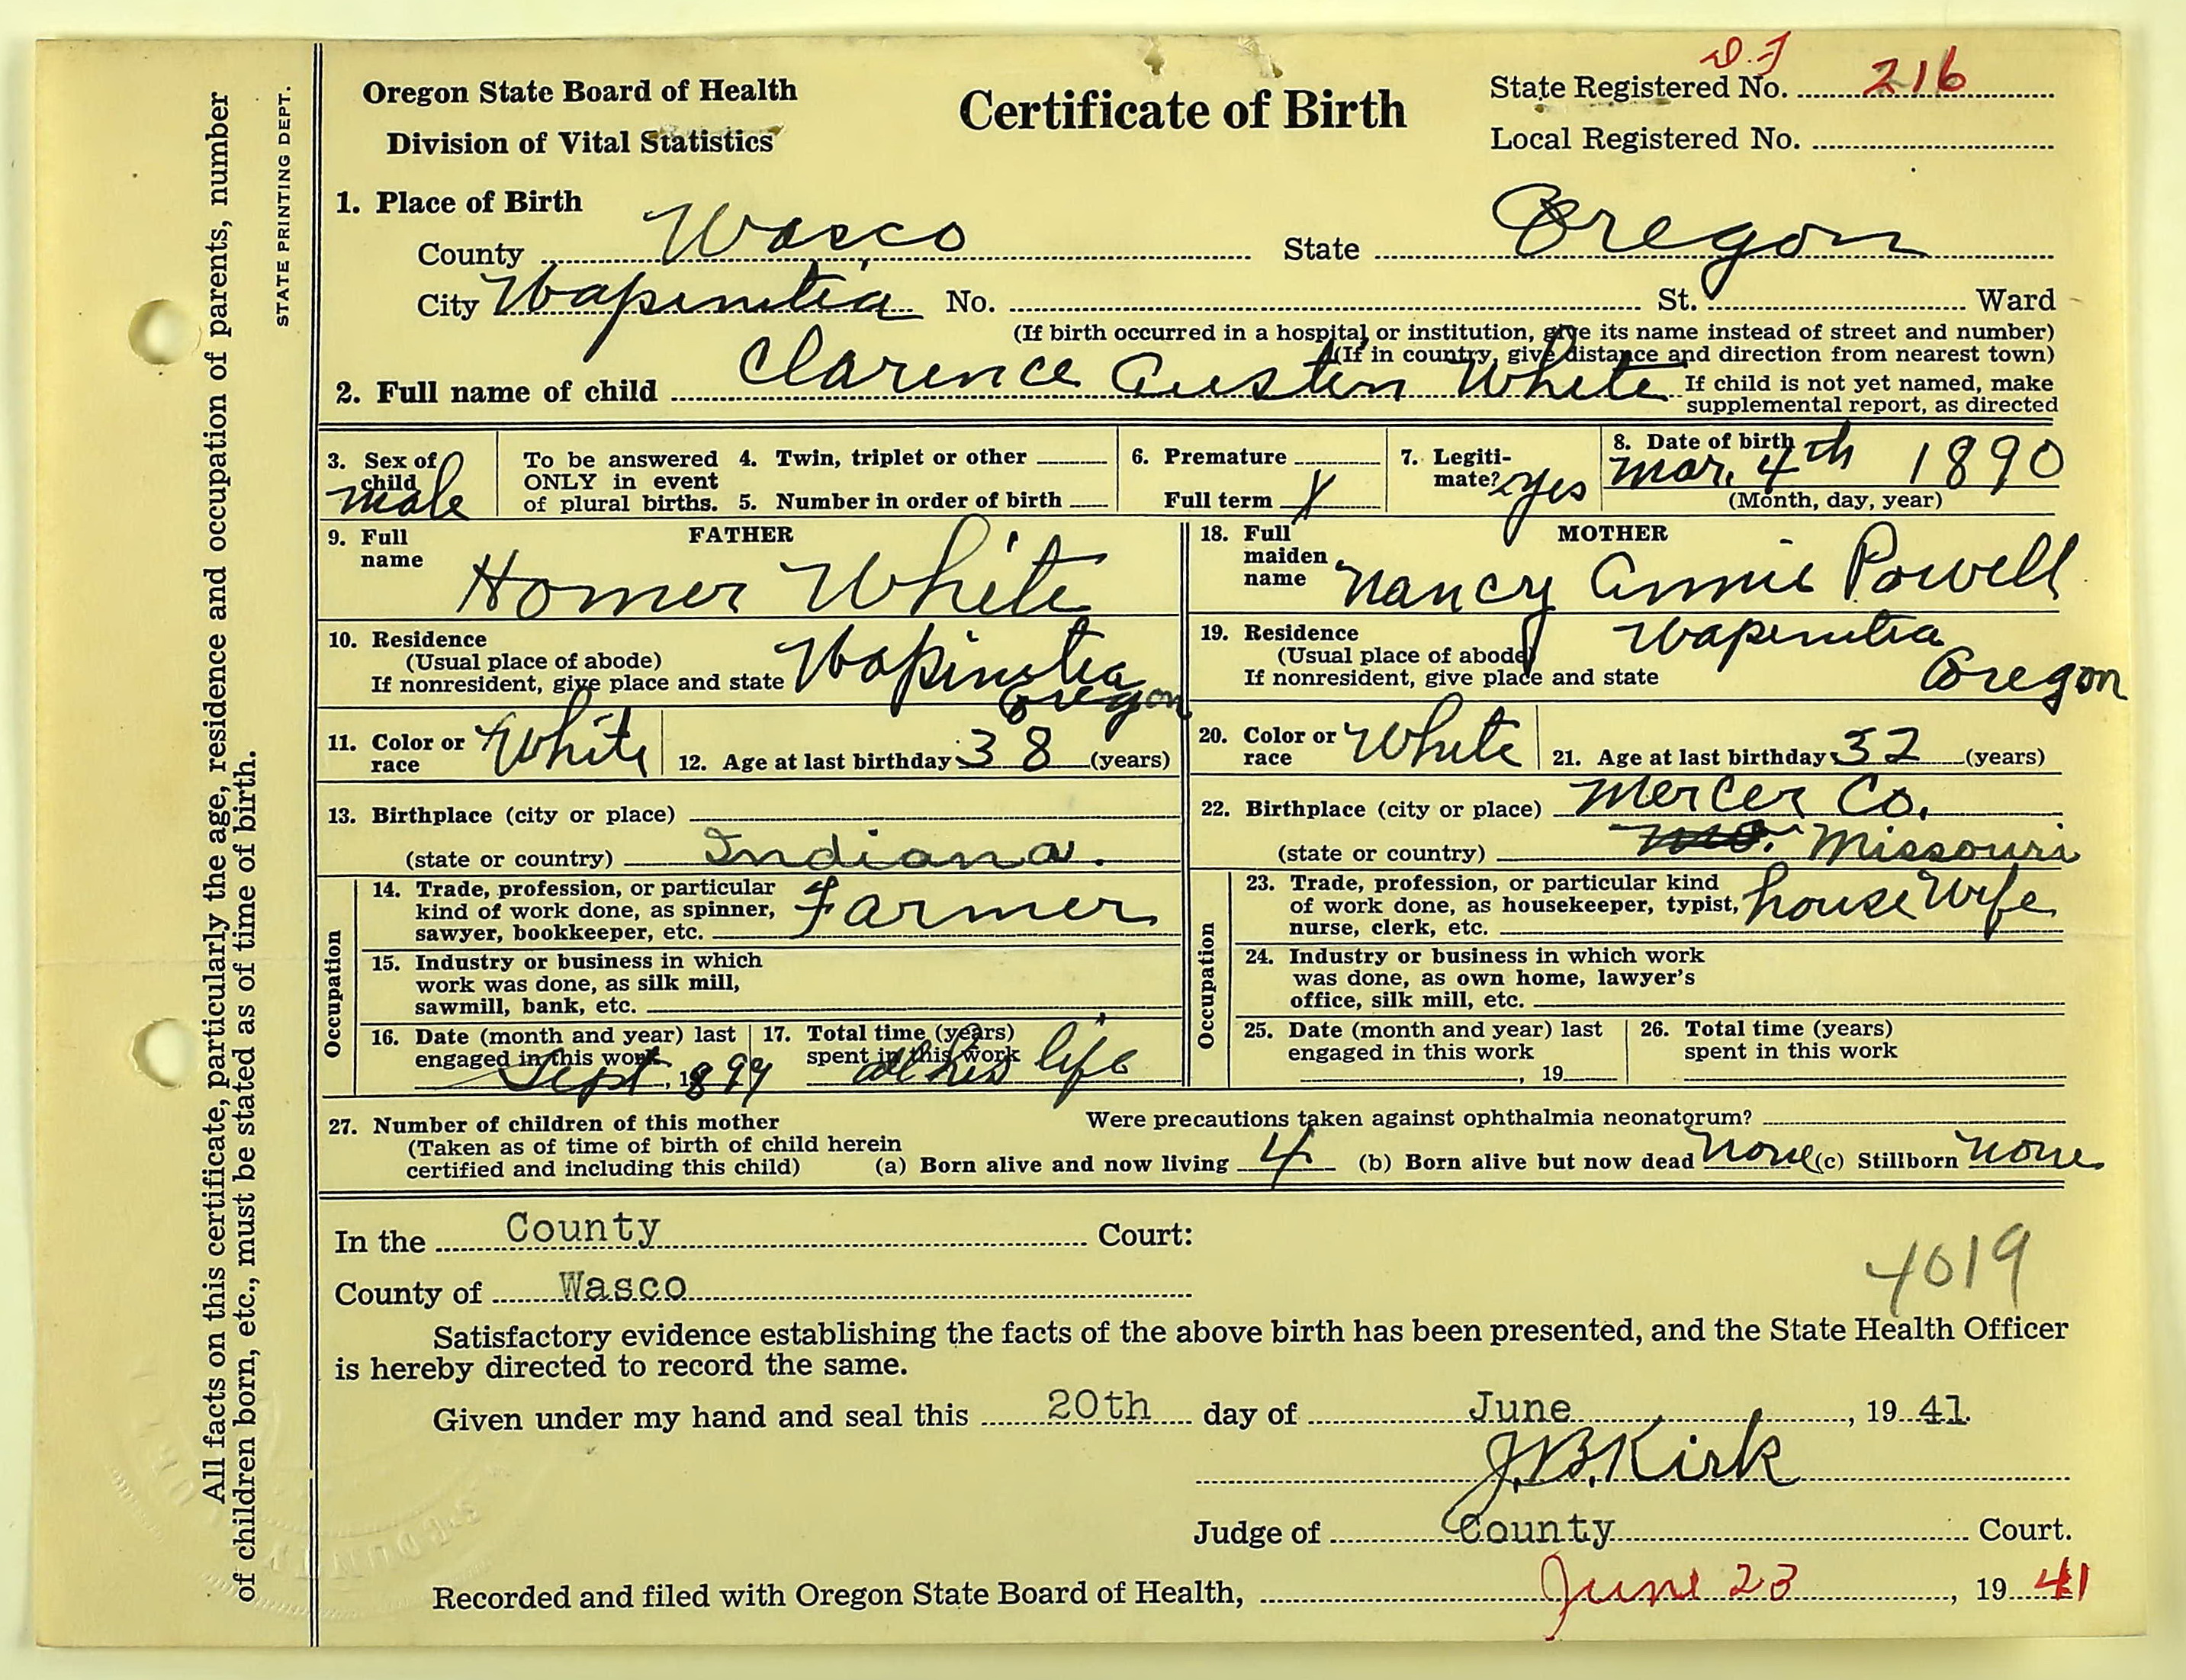 All facts on this certificate, particularly the age, residence and occupation of parents, number
of children born, etc., must be stated as of time of birth.
STATE PRINTING DEPT.
Oregon State Board of Health
Division of Vital Statistics
Certificate of Birth
D.F
State Registered No. 216
Local Registered No.
1. Place of Birth
County Wasco State Oregon
City Wapinitia No. St. Ward
(If birth occurred in a hospital or institution, give its name instead of street and number)
(If in country, give distance and direction from nearest town)
2. Full name of child Clarence Austin White If child is not yet named, make
supplemental report, as directed
3. Sex of
child
male
To be answered
ONLY in event
of plural births.
4. Twin, triplet or other
5. Number in order of birth
6. Premature
Full term X
7. Legiti-
mate? yes
8. Date of birth
Mar. 4th 1890
(Month, day, year)
FATHER
9. Full
name
Homer White
10. Residence
(Usual place of abode)
If nonresident, give place and state
Wapinitia
Oregon
11. Color or
race
White
12. Age at last birthday 38 (years)
13. Birthplace (city or place)
(state or country) Indiana.
Occupation
14. Trade, profession, or particular
kind of work done, as spinner,
sawyer, bookkeeper, etc.
Farmer
15. Industry or business in which
work was done, as silk mill,
sawmill, bank, etc.
16. Date (month and year) last
engaged in this work
Sept, 1899
17. Total time (years)
spent in this work
all his life
MOTHER
18. Full
maiden
name
Nancy Annie Powell
19. Residence
(Usual place of abode)
If nonresident, give place and state
Wapinitia
Oregon
20. Color or
race
White
21. Age at last birthday 32 (years)
22. Birthplace (city or place) Mercer Co.
(state or country) Mo. Missouri
Occupation
23. Trade, profession, or particular kind
of work done, as housekeeper, typist,
nurse, clerk, etc.
house wife
24. Industry or business in which work
was done, as own home, lawyer's
office, silk mill, etc.
25. Date (month and year) last
engaged in this work
, 19
26. Total time (years)
spent in this work
27. Number of children of this mother
(Taken as of time of birth of child herein
certified and including this child)
Were precautions taken against ophthalmia neonatorum?
(a) Born alive and now living 4 (b) Born alive but now dead None (c) Stillborn None
In the County Court:
County of Wasco
4019
Satisfactory evidence establishing the facts of the above birth has been presented, and the State Health Officer
is hereby directed to record the same.
Given under my hand and seal this 20th day of June, 19 41.
J.B. Kirk
Judge of County Court.
Recorded and filed with Oregon State Board of Health, June 23, 19 41